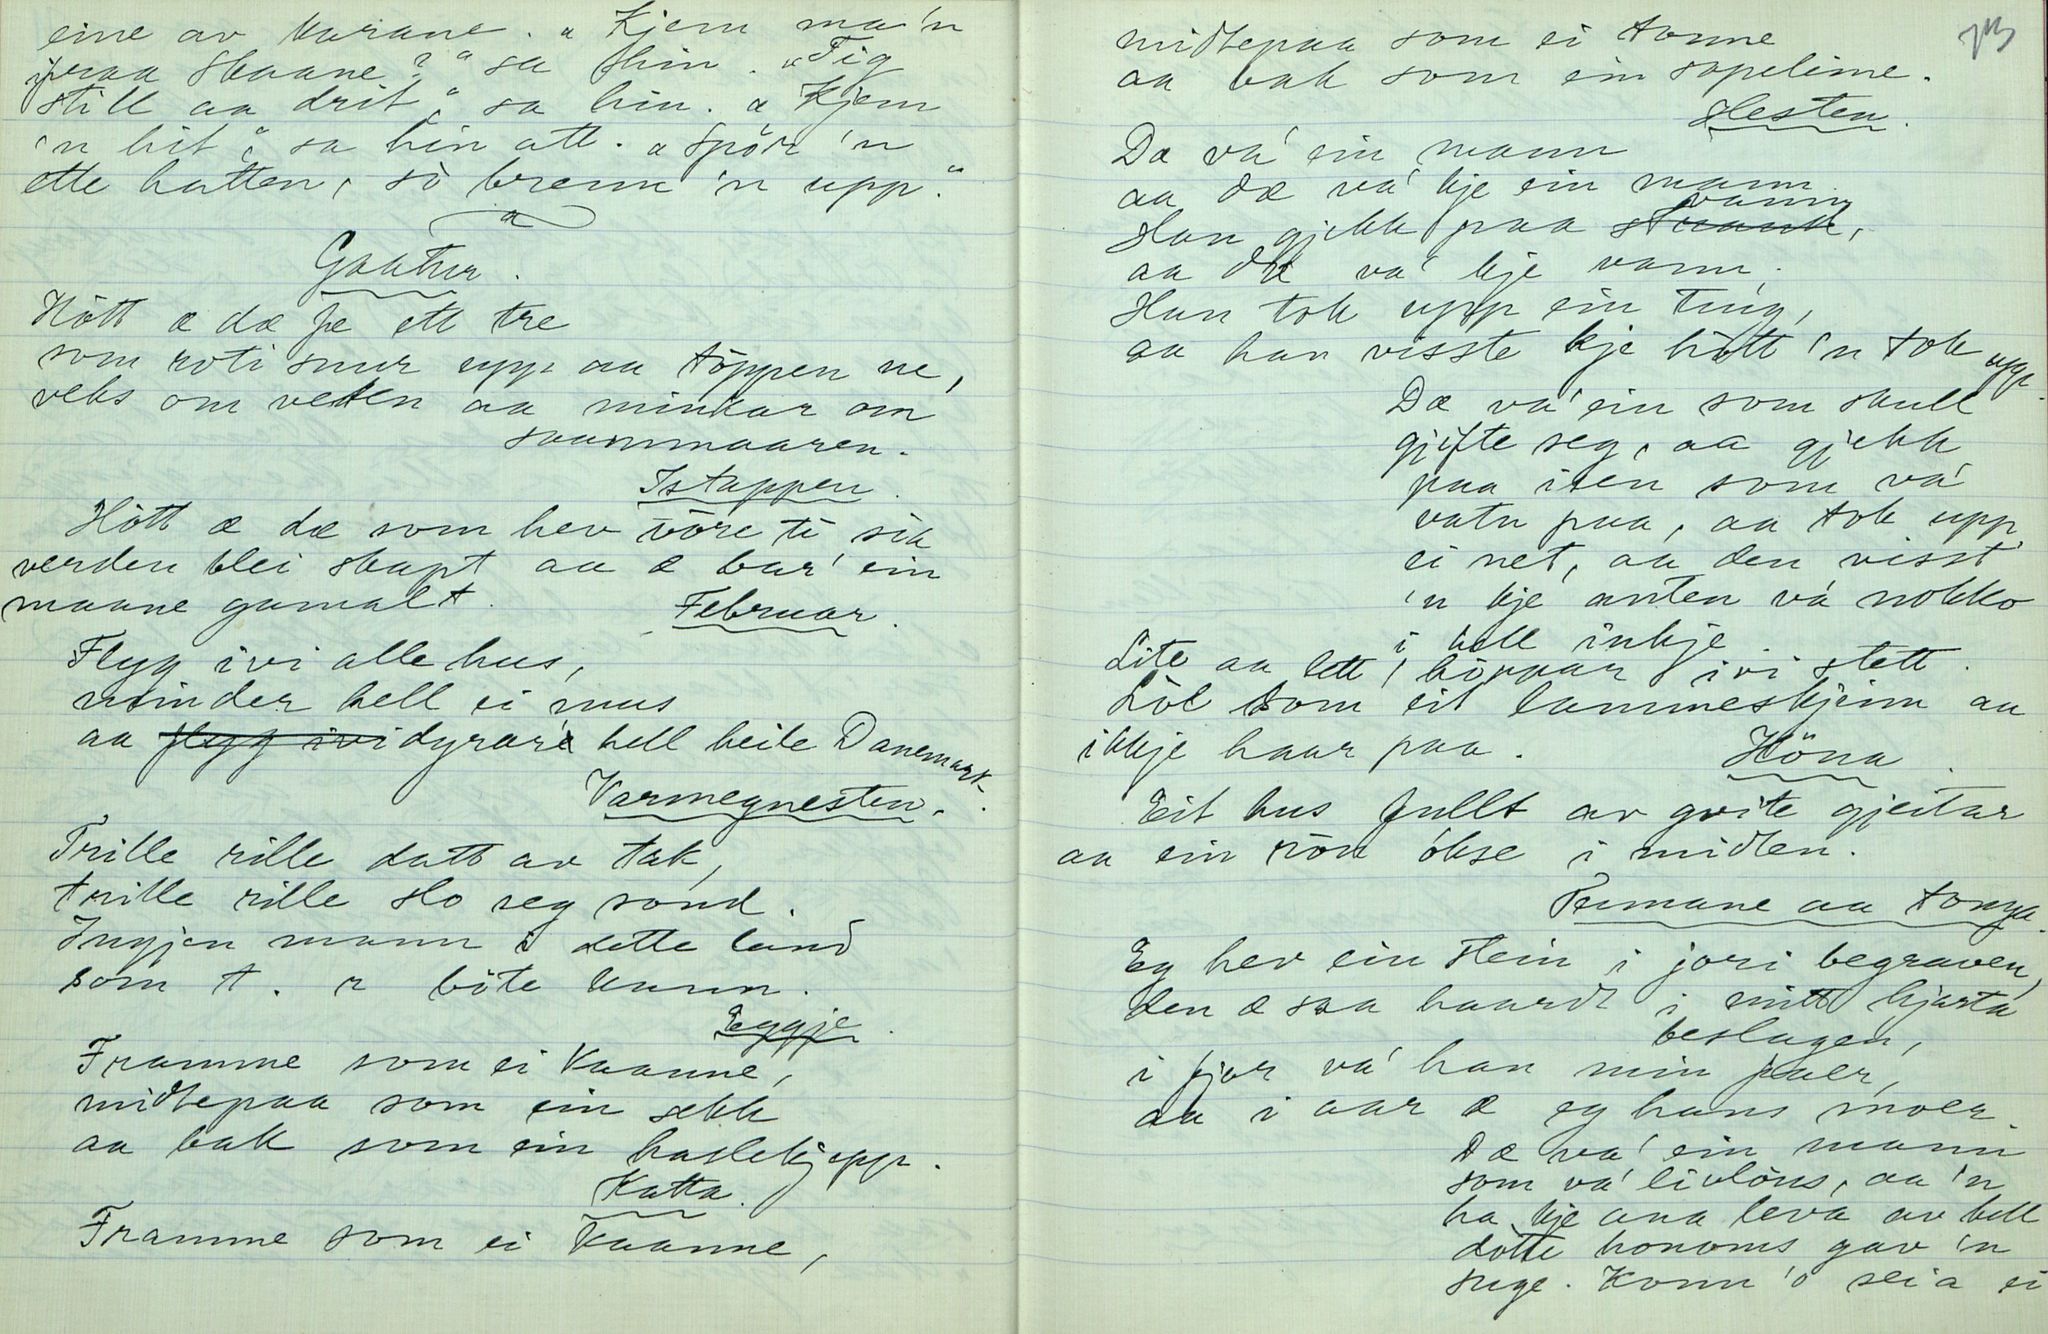 eine av karane. „Kjem ma'n
ifraa Skaane?“ sa hin. „Tig
still aa drit“, sa hin. „Kjem
'n hit“, sa hin att. „Spör 'n
ette hatten, so brenn 'n upp.“
Gaatur.
Hott æ dæ fe ett tre
som roti snur upp aa töppen ne,
veks om veten aa minkar om
saammaaren.
Istappen.
Hott æ dæ som hev vore ti sia
verden blei skapt aa æ bar' ein
maane gamalt.
Februar.
Flyg ivi alle hus,
minder hell ei mus
aa flyg ivi dyrare hell heile Danemark.
Varmegnesten.
Trille rille datt av tak,
trille rille slo seg sond.
Ingjen mann i dette land
som t. r böte kann.
Eggje.
Framme som ei kaanne,
midtepaa som ein sekk
aa bak som ein haslekjepp.
Katta.
Framme som ei kaanne,
midtepaa som ei tonne
aa bak som ein sopelime.
Hesten.
Dæ va' ein mann
aa dæ va' kje ein mann.
Han gjekk paa vann,
aa dæ va' kje vann.
Han tok upp ein ting,
aa han visste kje hott 'n tok upp.
Dæ va' ein som skull
gjifte seg, aa gjekk
paa isen som va'
vatn paa, aa tok upp
ei net, aa den visst'
'n kje anten va' nokko
i hell inkje.
Lite aa lett, höppar ivi stett.
Lòl som eit lammeskjinn aa
ikkje haar paa.
Höna.
Eit hus fullt av gvite gjeitar
aa ein röu okse i midten.
Tennane aa tonga.
Eg hev ein stein i jori begraven,
den æ saa haardt i mitt hjarta
beslagen,
i fjor va' han min faer,
aa i aar æ eg hans moer.
Dæ va' ein mann
som va' livlöus, aa 'n
ha kje ana leva av hell
dotte honoms gav 'n
suge. Konn 'o sei a ei